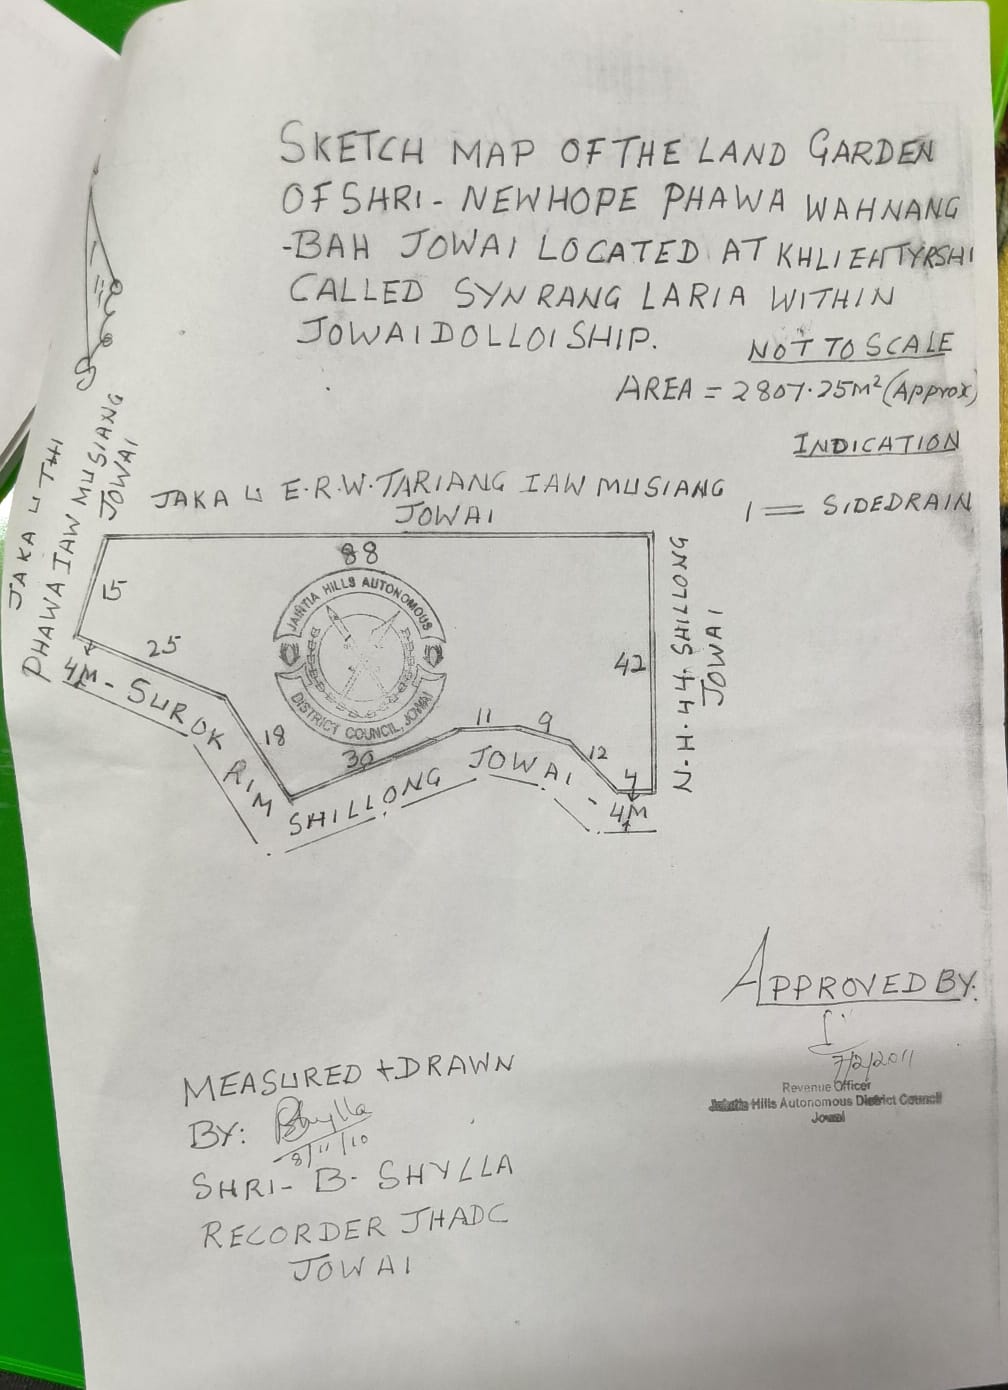 SKETCH MAP OF THE LAND GARDEN
OF SHRI - NEWHOPE PHAWA WAHNANG
-BAH JOWAI LOCATED AT KHLIEHTYRSHI
CALLED SYNRANG LARIA WITHIN
JOWAI DOLLOISHIP.
NOT TO SCALE
AREA = 2807.25M² (Approx)
INDICATION
1 = SIDEDRAIN
JAKA U THI
PHAWA IAW MUSIANG
JOWAI
JAKA U E.R.W. TARIANG IAW MUSIANG
JOWAI
88
15
25
18
30
11
9
12
4
42
N.H.44 SHILLONG
JOWAI
4M - SUROK RIM SHILLONG JOWAI - 4M
JAINTIA HILLS AUTONOMOUS
DISTRICT COUNCIL, JOWAI
APPROVED BY:
7/2/2011
Revenue Officer
Jaintia Hills Autonomous District Council
Jowai
MEASURED + DRAWN
BY: Bhylla
8/11/10
SHRI - B - SHYLLA
RECORDER JHADC
JOWAI